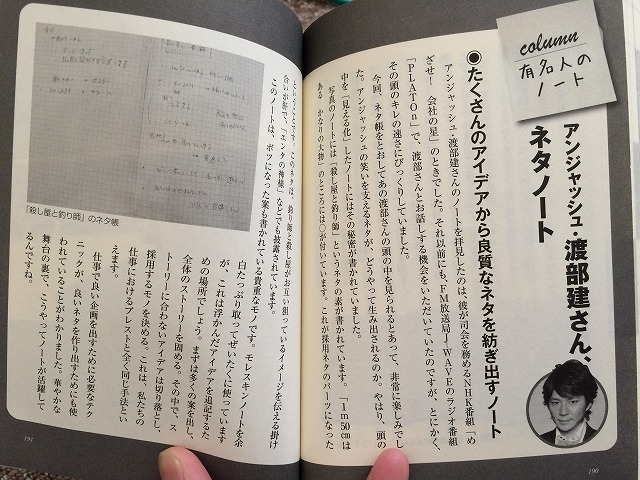 column
有名人の
ノート
アンジャッシュ・渡部建さん、
ネタノート
●たくさんのアイデアから良質なネタを紡ぎ出すノート
アンジャッシュ・渡部建さんのノートを拝見したのは、彼が司会を務めるNHK番組「め
ざせ！ 会社の星」のときでした。それ以前にも、FM放送局J-WAVEのラジオ番組
「PLATOn」で、渡部さんとお話しする機会をいただいていたのですが、とにかく、
その頭のキレの速さにびっくりしていました。
今回、ネタ帳をとおしてあの渡部さんの頭の中を見られるとあって、非常に楽しみでし
た。アンジャッシュの笑いを支えるネタが、どうやって生み出されるのか、やはり、頭の
中を「見える化」したノートにはその秘密が書かれていました。
写真のノートには「殺し屋と釣り師」というネタの素が書かれています。「1m50cmは
ある かなりの大物」のところには〇が付いています。これが採用ネタのパーツになった
190
ということです。このネタは、釣り師と殺し屋がお互い狙っているイメージを伝える掛け
合いが肝で、「エンタの神様」などでも披露されています。
このノートは、ボツになった案も書かれている貴重なモノです。モレスキンノートを余
白たっぷり取ってぜいたくに使っています
が、これは浮かんだアイデアを追記するた
めの場所でしょう。まずは多くの案を出し、
全体のストーリーを固める。その中で、ス
トーリーに合わないアイデアは切り落とし、
採用するモノを決める。これは、私たちの
仕事におけるブレストと全く同じ手法とい
えます。
仕事で良い企画を出すために必要なテク
ニックが、良いネタを作り出すためにも使
われていることがわかりました。華やかな
舞台の裏で、こうやってノートが活躍して
るんですね。
「殺し屋と釣り師」のネタ帳
191